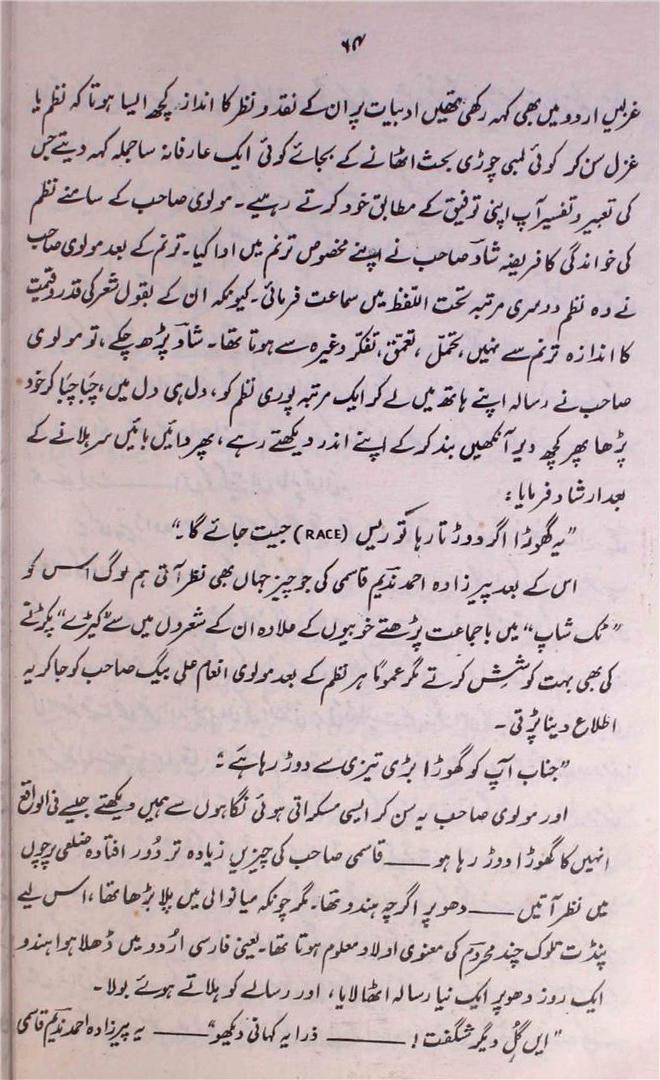 ۶۴
غزلیں اردو میں بھی کہہ رکھی تھیں ادبیات پر ان کے نقد و نظر کا انداز کچھ ایسا ہوتا کہ نظم یا
غزل سن کر کوئی لمبی چوڑی بحث اٹھانے کے بجائے کوئی ایک عارفانہ سا جملہ کہہ دیتے جس
کی تعبیر و تفسیر آپ اپنی توفیق کے مطابق خود کرتے رہیے۔ مولوی صاحب کے سامنے نظم
کی خواندگی کا فریضہ شادؔ صاحب نے اپنے مخصوص ترنم میں ادا کیا۔ ترنم کے بعد مولوی صاحب
نے وہ نظم دوسری مرتبہ تحت اللفظ میں سماعت فرمائی۔ کیونکہ ان کے بقول شعر کی قدر و قیمت
کا اندازہ ترنم سے نہیں، تحمّل، تعمّق، تفکّر وغیرہ سے ہوتا تھا۔ شادؔ پڑھ چکے، تو مولوی
صاحب نے رسالہ اپنے ہاتھ میں لے کر ایک مرتبہ پوری نظم کو، دل ہی دل میں، چبا چبا کر خود
پڑھا پھر کچھ دیر آنکھیں بند کر کے اپنے اندر دیکھتے رہے، پھر دائیں بائیں سر ہلانے کے
بعد ارشاد فرمایا:
”یہ گھوڑا اگر دوڑتا رہا تو ریس (RACE) جیت جائے گا۔“
اس کے بعد پیرزادہ احمد ندیم قاسمی کی جو چیز جہاں بھی نظر آتی ہم لوگ اس کو
”ٹک شاپ“ میں باجماعت پڑھتے خوبیوں کے علاوہ ان کے شعروں میں سے ”کیڑے“ پکڑنے
کی بھی بہت کوشش کرتے مگر عموماً ہر نظم کے بعد مولوی انعام علی بیگ صاحب کو جا کر یہ
اطلاع دینا پڑتی۔
”جناب آپ کو گھوڑا بڑی تیزی سے دوڑ رہا ہے“
اور مولوی صاحب یہ سن کر ایسی مسکراتی ہوئی نگاہوں سے ہمیں دیکھتے جیسے فی الواقع
انہیں کا گھوڑا دوڑ رہا ہو ——— قاسمی صاحب کی چیزیں زیادہ تر دُور افتادہ ضلعی پرچوں
میں نظر آتیں ——— دھوپر اگرچہ ہندو تھا۔ مگر چونکہ میانوالی میں پلا بڑھا تھا، اس لیے
پنڈت تلوک چند محرومؔ کی معنوی اولاد معلوم ہوتا تھا۔ یعنی فارسی اُردو میں ڈھلا ہوا ہندو
ایک روز دھوپر ایک نیا رسالہ اٹھا لایا، اور رسالے کو ہلاتے ہوئے بولا۔
”ایں گُل دیگر شگفت! ——— ذرا یہ کہانی دیکھو“ ——— یہ پیرزادہ احمد ندیمؔ قاسمی